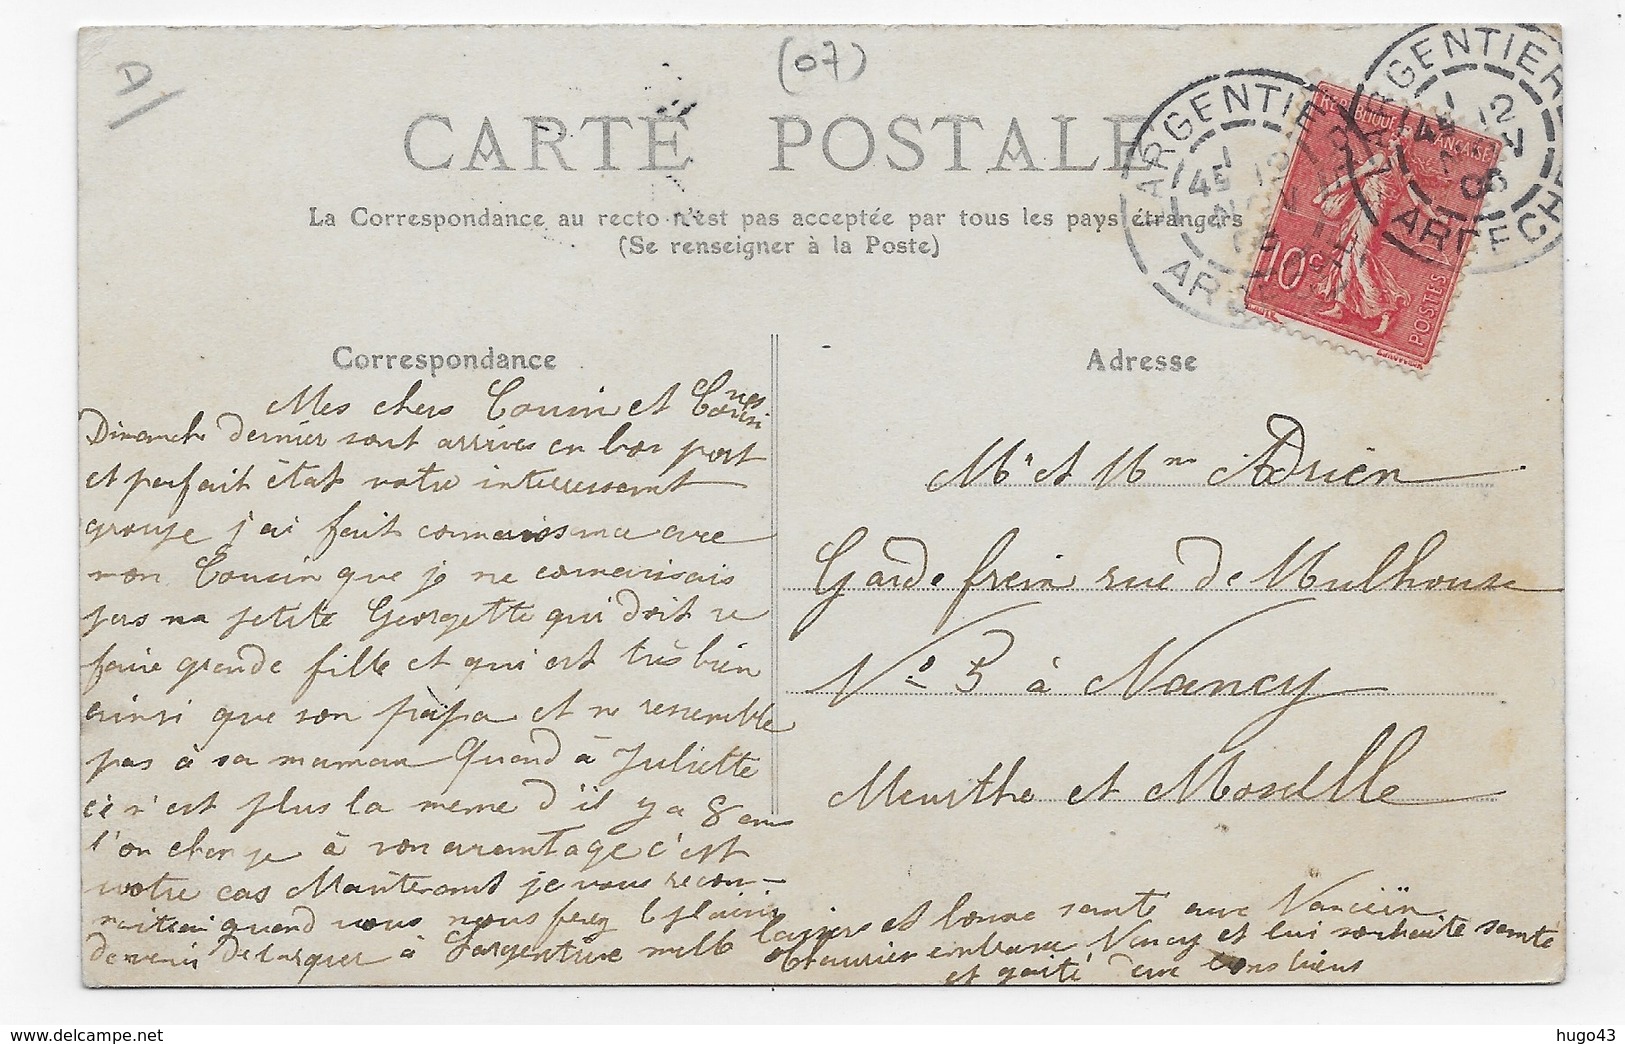 (07)
A/
CARTE POSTALE
La Correspondance au recto n'est pas acceptée par tous les pays étrangers
(Se renseigner à la Poste)
LARGENTIERE
ARDECHE
12
REPUBLIQUE FRANÇAISE
10c
POSTES
Correspondance
Adresse
Mes chers Cousin et Cousines
Dimanche dernier sont arrivés en bon port
et parfait état votre interressant
groupe j'ai fait connaissance avec
mon Cousin que je ne connaissais
pas ma petite Georgette qui doit se
faire grande fille et qui est très bien
ainsi que son papa et ne ressemble
pas à sa maman Quand à Juliette
ce n'est plus la meme d'il y a 8 ans
l'on change à son avantage c'est
votre cas Maintenant je vous recon-
naitrai quand vous nous ferez le plaisir
de venir à Largentière mille baisers et bonne santé aux Nanceïn
embrasse Nancy et lui souhaite santé
et gaité aux tons liens
Mr et Mme Adrien
Garde frein rue de Mulhouse
No 3 à Nancy
Meurthe et Moselle
hugo43